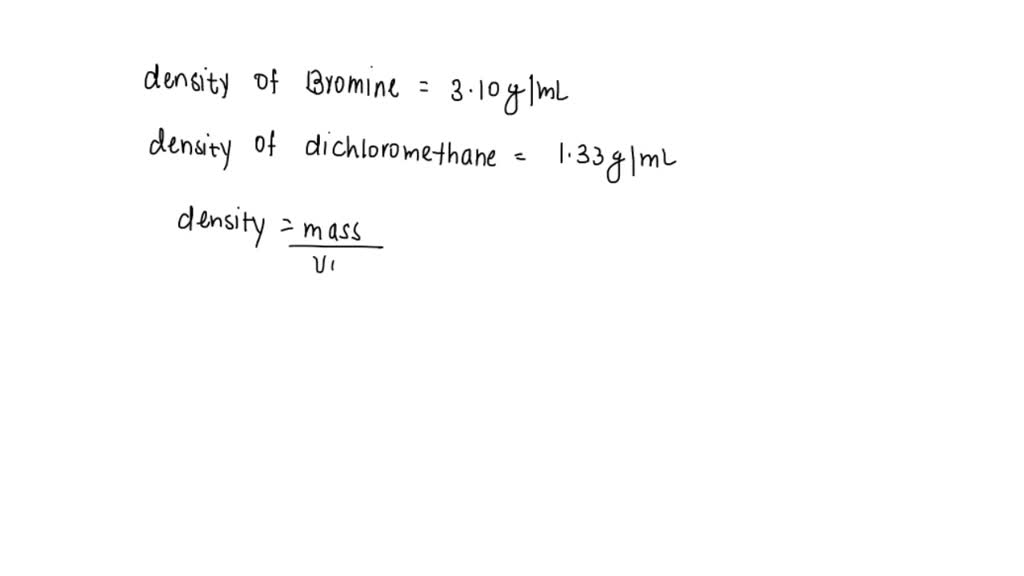 density of Bromine = 3.10 g/mL
density of dichloromethane = 1.33 g/mL
density = mass